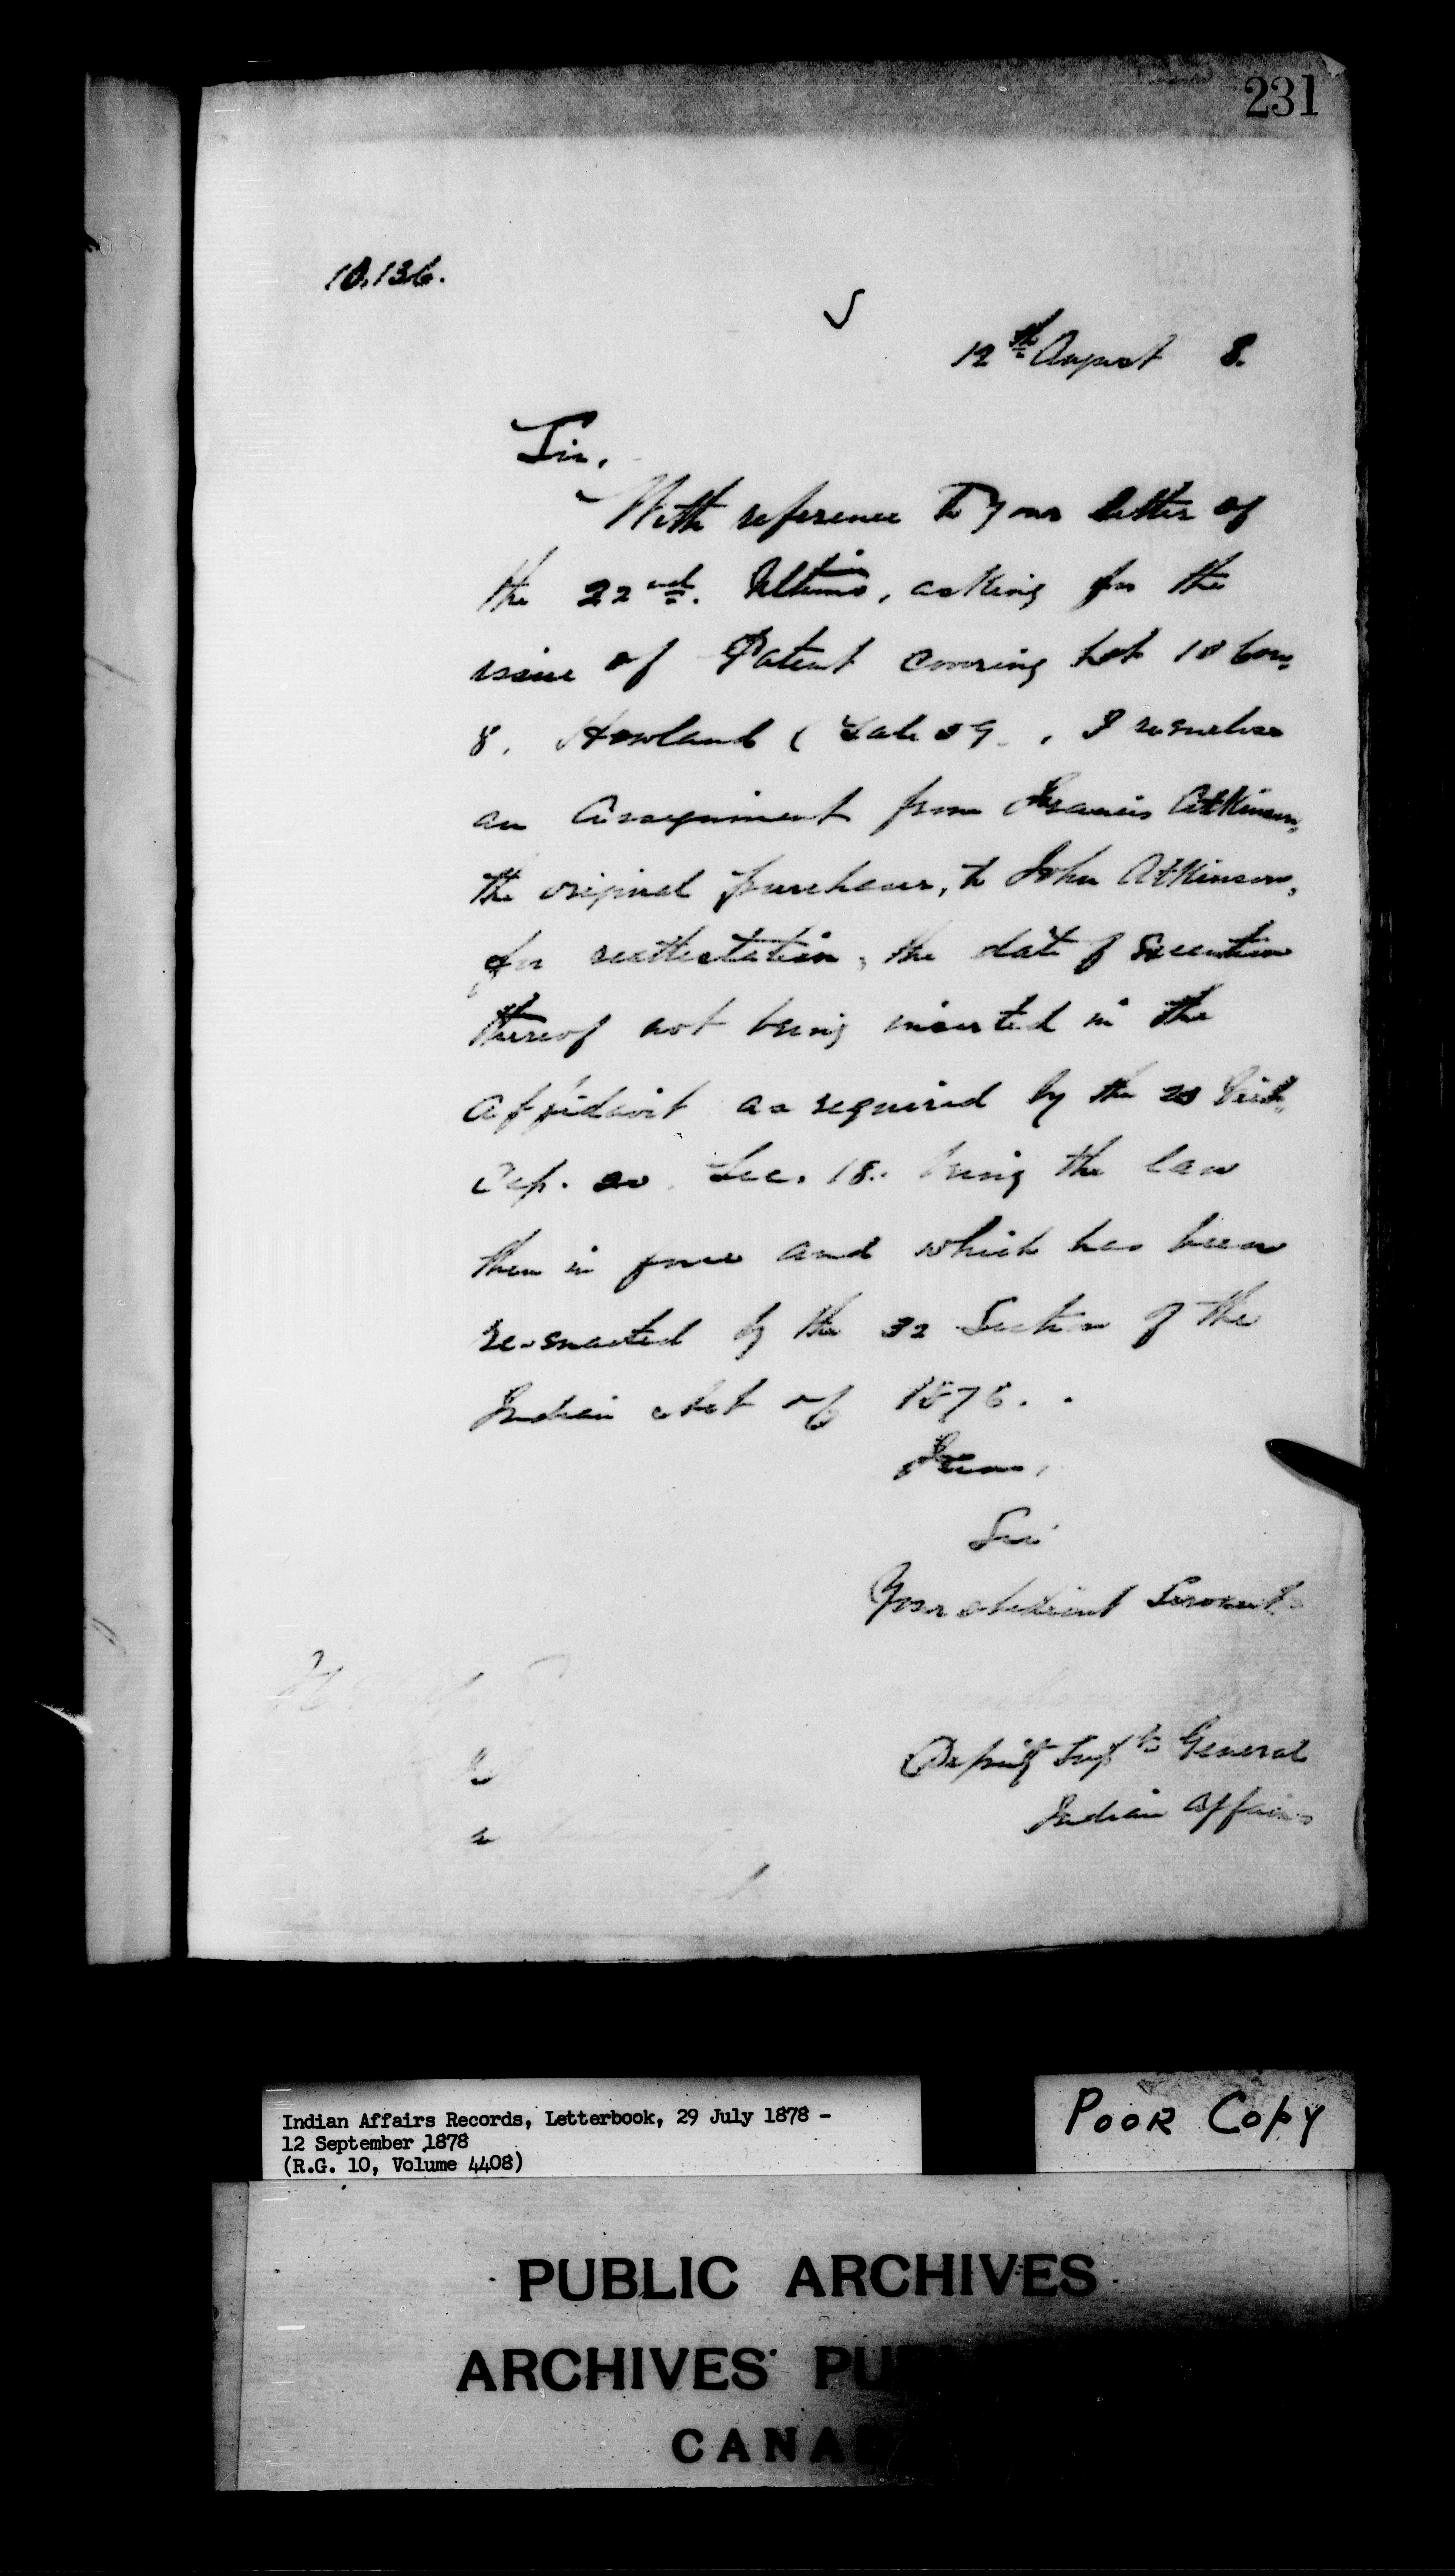 231
10,136.
12th August 8.
Sir,
With reference to your letter of
the 22nd. Ultimo, asking for the
issue of Patent covering Lot 18 Con.
8, Howland (Sale 59, I re-enclose
an Assignment from Francis Atkinson,
the original purchaser, to John Atkinson,
for reattestation, the date of execution
thereof not being inserted in the
affidavit as required by the 23 Vict.
Cap. Sec. 18. being the law
then in force and which has been
re-enacted by the 32 Section of the
Indian Act of 1876.
I am,
Sir
Your obedient Servant
Deputy Supt General
Indian Affairs
Indian Affairs Records, Letterbook, 29 July 1878 -
12 September 1878
(R.G. 10, Volume 4408)
POOR COPY
PUBLIC ARCHIVES
ARCHIVES PU
CANA